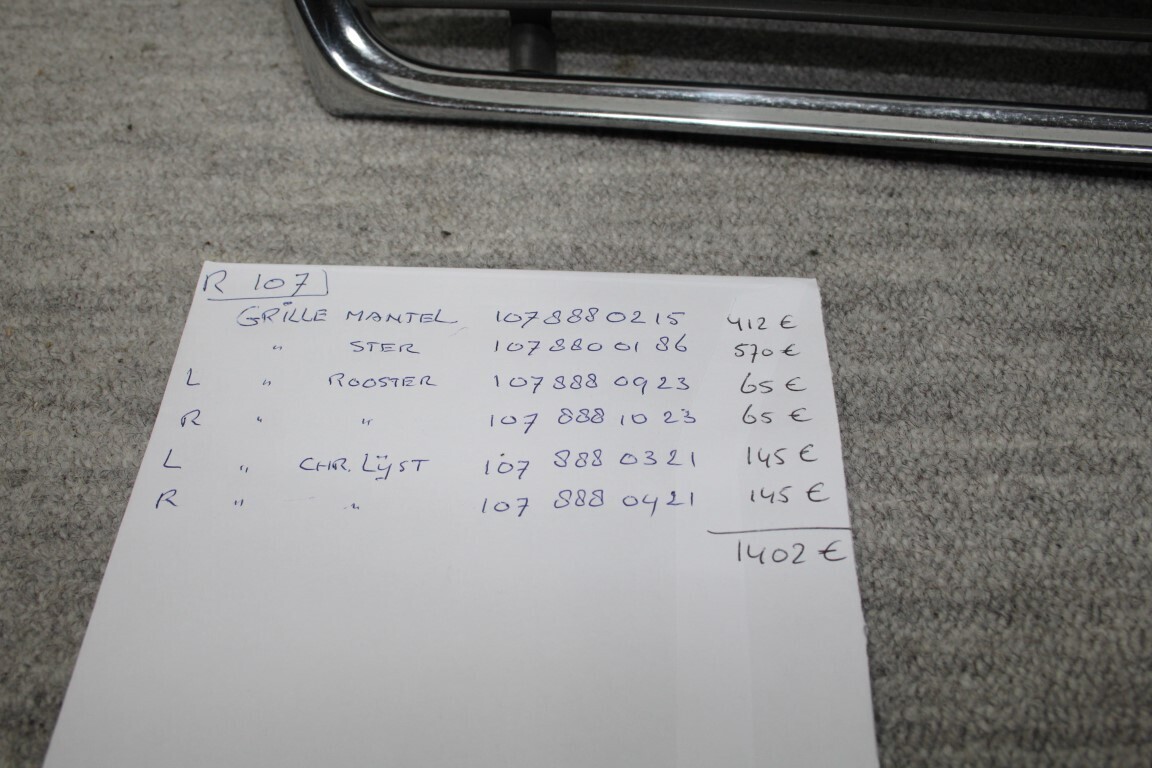 R 107
GRILLE MANTEL 107 888 02 15 412 €
" STER 107 880 01 86 570 €
L " ROOSTER 107 888 09 23 65 €
R " " 107 888 10 23 65 €
L " CHR. LIJST 107 888 03 21 145 €
R " " 107 888 04 21 145 €
1402 €